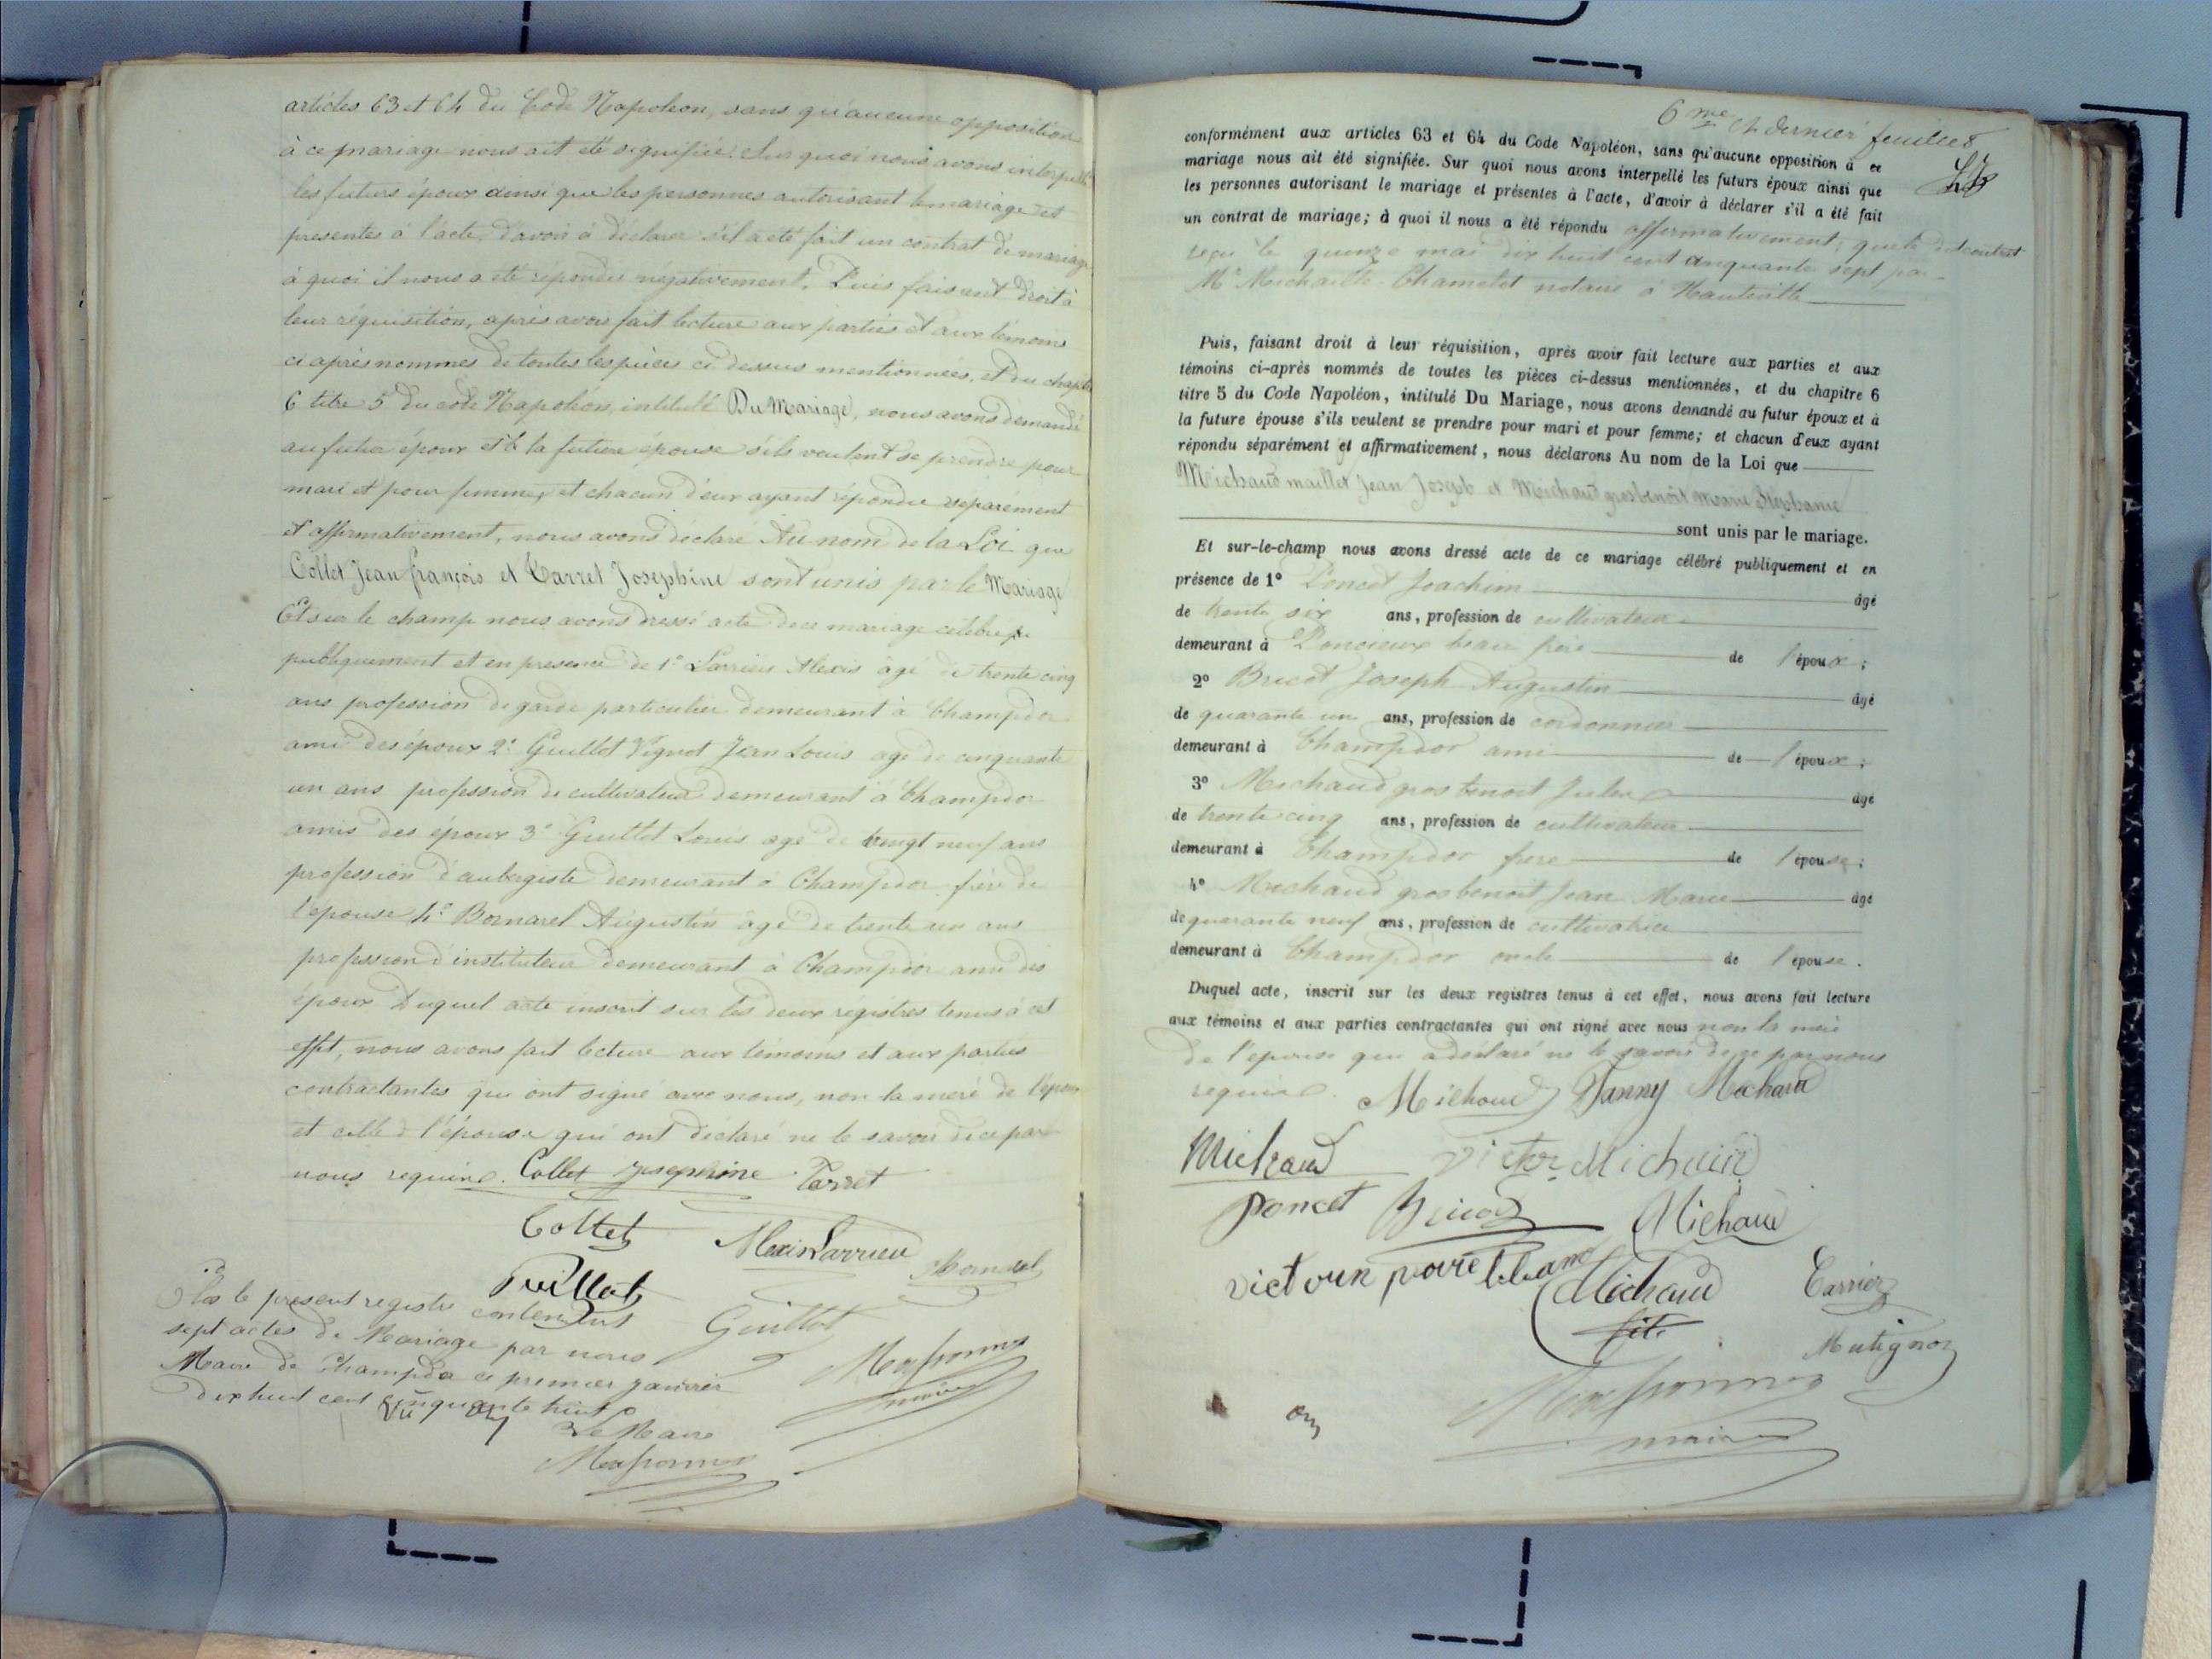 articles 63 et 64 du Code Napoléon, sans qu'aucune opposition
à ce mariage nous ait été signifiée. Sur quoi nous avons interpellé
les futurs époux ainsi que les personnes autorisant le mariage et
presentes à l'acte, d'avoir à déclarer s'il a été fait un contrat de mariage
à quoi il nous a été répondu négativement. Puis faisant droit à
leur requisition, après avoir fait lecture aux parties et aux témoins
ci après nommés de toutes les pièces ci dessus mentionnées, et du chapitre
6 titre 5 du code Napoléon, intitulé Du Mariage, nous avons demandé
au futur époux et à la future épouse s'ils veulent se prendre pour
mari et pour femme, et chacun d'eux ayant répondu séparément
et affirmativement, nous avons déclaré Au nom de la Loi que
Collet Jean françois et Carret Josephine sont unis par le Mariage
Et sur le champ nous avons dressé acte de ce mariage célébré
publiquement et en presence de 1° Larrieu Alexis âgé de trente cinq
ans profession de garde particulier demeurant à Champdor
ami des époux 2° Guillot Vignot Jean Louis agé de cinquante
un ans profession de cultivateur demeurant à Champdor
amis des époux 3° Guillot Louis agé de vingt neuf ans
profession d'aubergiste demeurant à Champdor frère de
l'epouse 4° Bornarel Augustin âgé de trente un ans
profession d'instituteur demeurant à Champdor ami des
époux Duquel acte inscrit sur les deux régistres tenus à cet
effet, nous avons fait lecture aux témoins et aux parties
contractantes qui ont signé avec nous, non la mère de l'époux
et celle de l'épouse qui ont déclaré ne le savoir de ce par
nous requine. Collet Josephine Carret
Collet Alexis Larrieu
Guillot
Clos le present registre contenant Guillot
sept actes de Mariage par nous
Maire de Champdor ce premier janvier
dix huit cent cinquante huit
Vu
Le Maire
6me et dernier feuillet
conformément aux articles 63 et 64 du Code Napoléon, sans qu'aucune opposition à ce
mariage nous ait été signifiée. Sur quoi nous avons interpellé les futurs époux ainsi que
les personnes autorisant le mariage et présentes à l'acte, d'avoir à déclarer s'il a été fait
un contrat de mariage; à quoi il nous a été répondu affirmativement, que le dit contrat
reçu le quinze mai dix huit cent cinquante sept par
Me Michaille Chamelet notaire à Hauteville
Puis, faisant droit à leur réquisition, après avoir fait lecture aux parties et aux
témoins ci-après nommés de toutes les pièces ci-dessus mentionnées, et du chapitre 6
titre 5 du Code Napoléon, intitulé Du Mariage, nous avons demandé au futur époux et à
la future épouse s'ils veulent se prendre pour mari et pour femme; et chacun d'eux ayant
répondu séparément et affirmativement, nous déclarons Au nom de la Loi que
Michaud maillet Jean Joseph et Michaud grosbenoit Marie Stéphanie
sont unis par le mariage.
Et sur-le-champ nous avons dressé acte de ce mariage célébré publiquement et en
présence de 1° Poncet Joachim âgé
de trente six ans, profession de cultivateur
demeurant à Poncieux beau frère de l'époux;
2° Bricot Joseph Augustin âgé
de quarante un ans, profession de cordonnier
demeurant à Champdor ami de l'époux;
3° Michaud gros benoit Julien âgé
de trente cinq ans, profession de cultivateur
demeurant à Champdor frère de l'épouse;
4° Michaud gros benoit Jean Marie âgé
de quarante neuf ans, profession de cultivatrice
demeurant à Champdor oncle de l'épouse.
Duquel acte, inscrit sur les deux registres tenus à cet effet, nous avons fait lecture
aux témoins et aux parties contractantes qui ont signé avec nous non la mère
de l'épouse qui a déclaré ne le savoir de ce par nous
requise. Michaud Fanny Michaud
Michaud Victor Michaud
Poncet Bricot Michaud
Michaud Carrier
fils Mutignon
maire